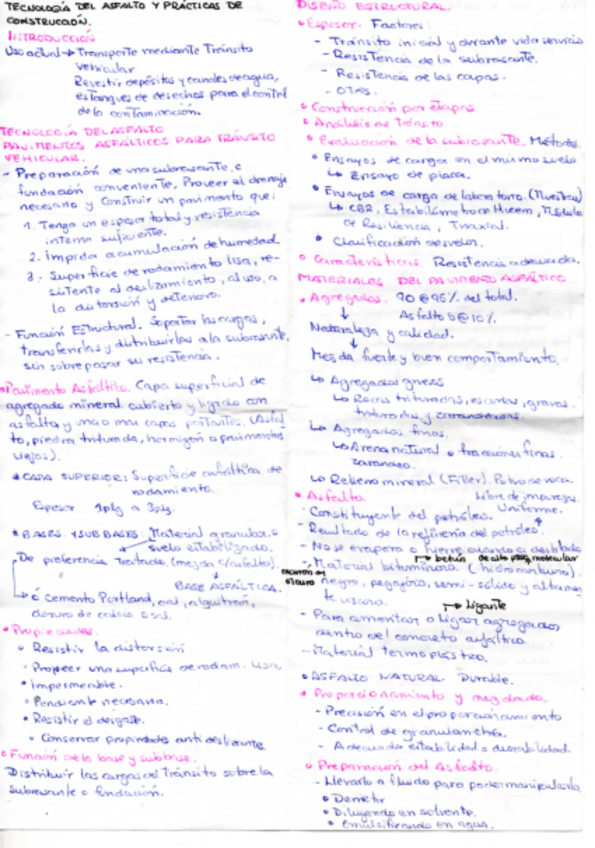 TECNOLOGÍA DEL ASFALTO Y PRÁCTICAS DE
CONSTRUCCIÓN.
INTRODUCCIÓN
Uso actual → Transporte mediante Tránsito
vehicular
Revestir depósitos y canales de agua,
estanques de desechos para el control
de la contaminación.
TECNOLOGÍA DEL ASFALTO
PAVIMENTOS ASFÁLTICOS PARA TRÁNSITO
VEHICULAR.
- Preparación de una subrasante, o
fundación conveniente, Proveer el drenaje
necesario y construir un pavimento que:
1. Tenga un espesor total y resistencia
interna suficiente.
2. Impida acumulación de humedad
3.- Superficie de rodamiento lisa, re-
sistente al deslizamiento, al uso, a
la distorsión y deterioro.
- Función Estructural. Soportar las cargas,
transferirlas y distribuirlas a la subrasante,
sin sobrepasar su resistencia.
• Pavimento Asfáltico. Capa superficial de
agregado mineral cubierto y ligado con
asfalto y una o mas capas portantes. (Asfal
to, piedra triturada, hormigón o pavimentos
viejos).
• CAPA SUPERIOR: Superficie asfáltica de
rodamiento.
Espesor 1plg a 3plg.
• BASES Y SUB BASES. Material granular o
suelo estabilizado.
De preferencia Tratado. (mezcla c/asfalto).
BASE ASFÁLTICA.
→ ó Cemento Portland, cal, alquitrán,
cloruro de calcio o sal.
• Propiedades.
• Resistir la distorsión
• Proveer una superficie de rodam. lisa.
• Impermeable.
• Pendiente necesaria.
• Resistir el desgaste.
• Conservar propiedades anti deslizante.
• Función de la base y subbase.
Distribuir las cargas del Tránsito sobre la
subrasante o fundación.
DISEÑO ESTRUCTURAL.
• Espesor. Factores:
- Tránsito inicial y durante vida servicio
- Resistencia de la subrasante.
- Resistencia de las capas.
- OTROS.
• Construcción por etapas
• Análisis de Tránsito.
• Evaluación de la subrasante. Métodos.
• Ensayos de carga en el mismo suelo
↳ Ensayo de placa.
• Ensayos de carga de laboratorio. (Muestras)
↳ CBR, Estabilómetro de Hveem, Módulo
de Resiliencia, Triaxial.
• Clasificación de suelos.
• Características. Resistencia adecuada.
MATERIALES DEL PAVIMENTO ASFÁLTICO
• Agregados. 90 @ 95% del total.
Asfalto 5 @ 10%.
Naturaleza y calidad.
Mezcla fuerte y buen comportamiento.
↳ Agregados gruesos
↳ Rocas trituradas, escorias, gravas.
trituradas y
↳ Agregados finos.
↳ Arena natural o fracciones finas.
↳ Relleno mineral (Filler). Polvo de roca.
Libre de impurezas.
Uniforme.
• Asfalto.
- Constituyente del petróleo.
- Resultado de la refinería del petróleo.
- No se evapora o hierve cuando es destilado
→ betún de alto peso molecular
- Material bituminoso. (hidrocarburo).
marrón os
curo negro, pegajoso, semi-sólido y altamen
te viscoso.
→ Ligante
- Para cementar o ligar agregados
dentro del concreto asfáltico
- Material termoplástico.
• ASFALTO NATURAL. Durable.
• Proporcionamiento y mezclado.
- Precisión en el proporcionamiento
- Control de granulometría.
- Adecuada estabilidad o durabilidad.
• Preparación del Asfalto.
- Llevarlo a fluido para poder manipularlo
• Derretir
• Diluyendo en solvente.
• Emulsificando en agua.